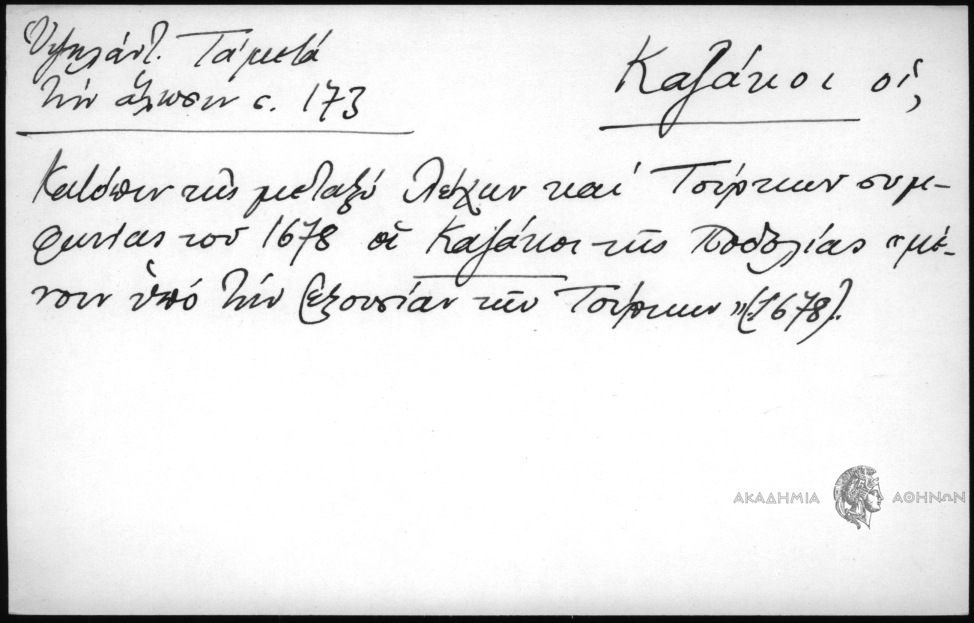 Ὑψηλάντ. Τά μετά
τήν ἅλωσιν σ. 173
Καζάκοι οἱ,
Κατόπιν τῆς μεταξύ Λέχων καί Τούρκων συμ-
φωνίας τοῦ 1678 οἱ Καζάκοι τῆς Ποδολίας "μέ-
νουν ὑπό τήν ἐξουσίαν τῶν Τούρκων" (1678).
ΑΚΑΔΗΜΙΑ ΑΘΗΝΩΝ